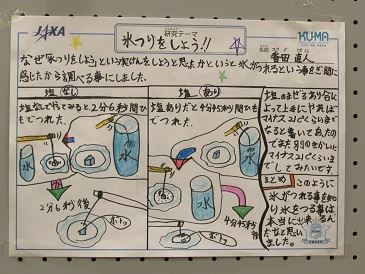 JAXA
研究テーマ
氷つりをしよう!!
KU-MA
名前
なぜ氷つりをしようという実けんをしようと思ったかというと氷がつれるという事をぎ問に
感じたから調べる事にしました。
塩なし
塩なしでやってみると2分6秒間ひ
もでつれた。
氷
水
2分6秒後
ポトッ
塩あり
塩ありだと4分45秒間ひ
もでつれた。
氷
水
4分45秒後
ポトッ
塩のまぜるわり合に
よって上手にやれば
マイナス21℃くらいまで
なると書いてあったの
でまた別のきかいに
マイナス21℃ぐらいまで
してみたいです。
まとめ
このように
氷がつれる事を知
り氷をつる事は
本当に出来るん
だなと思い
ました。